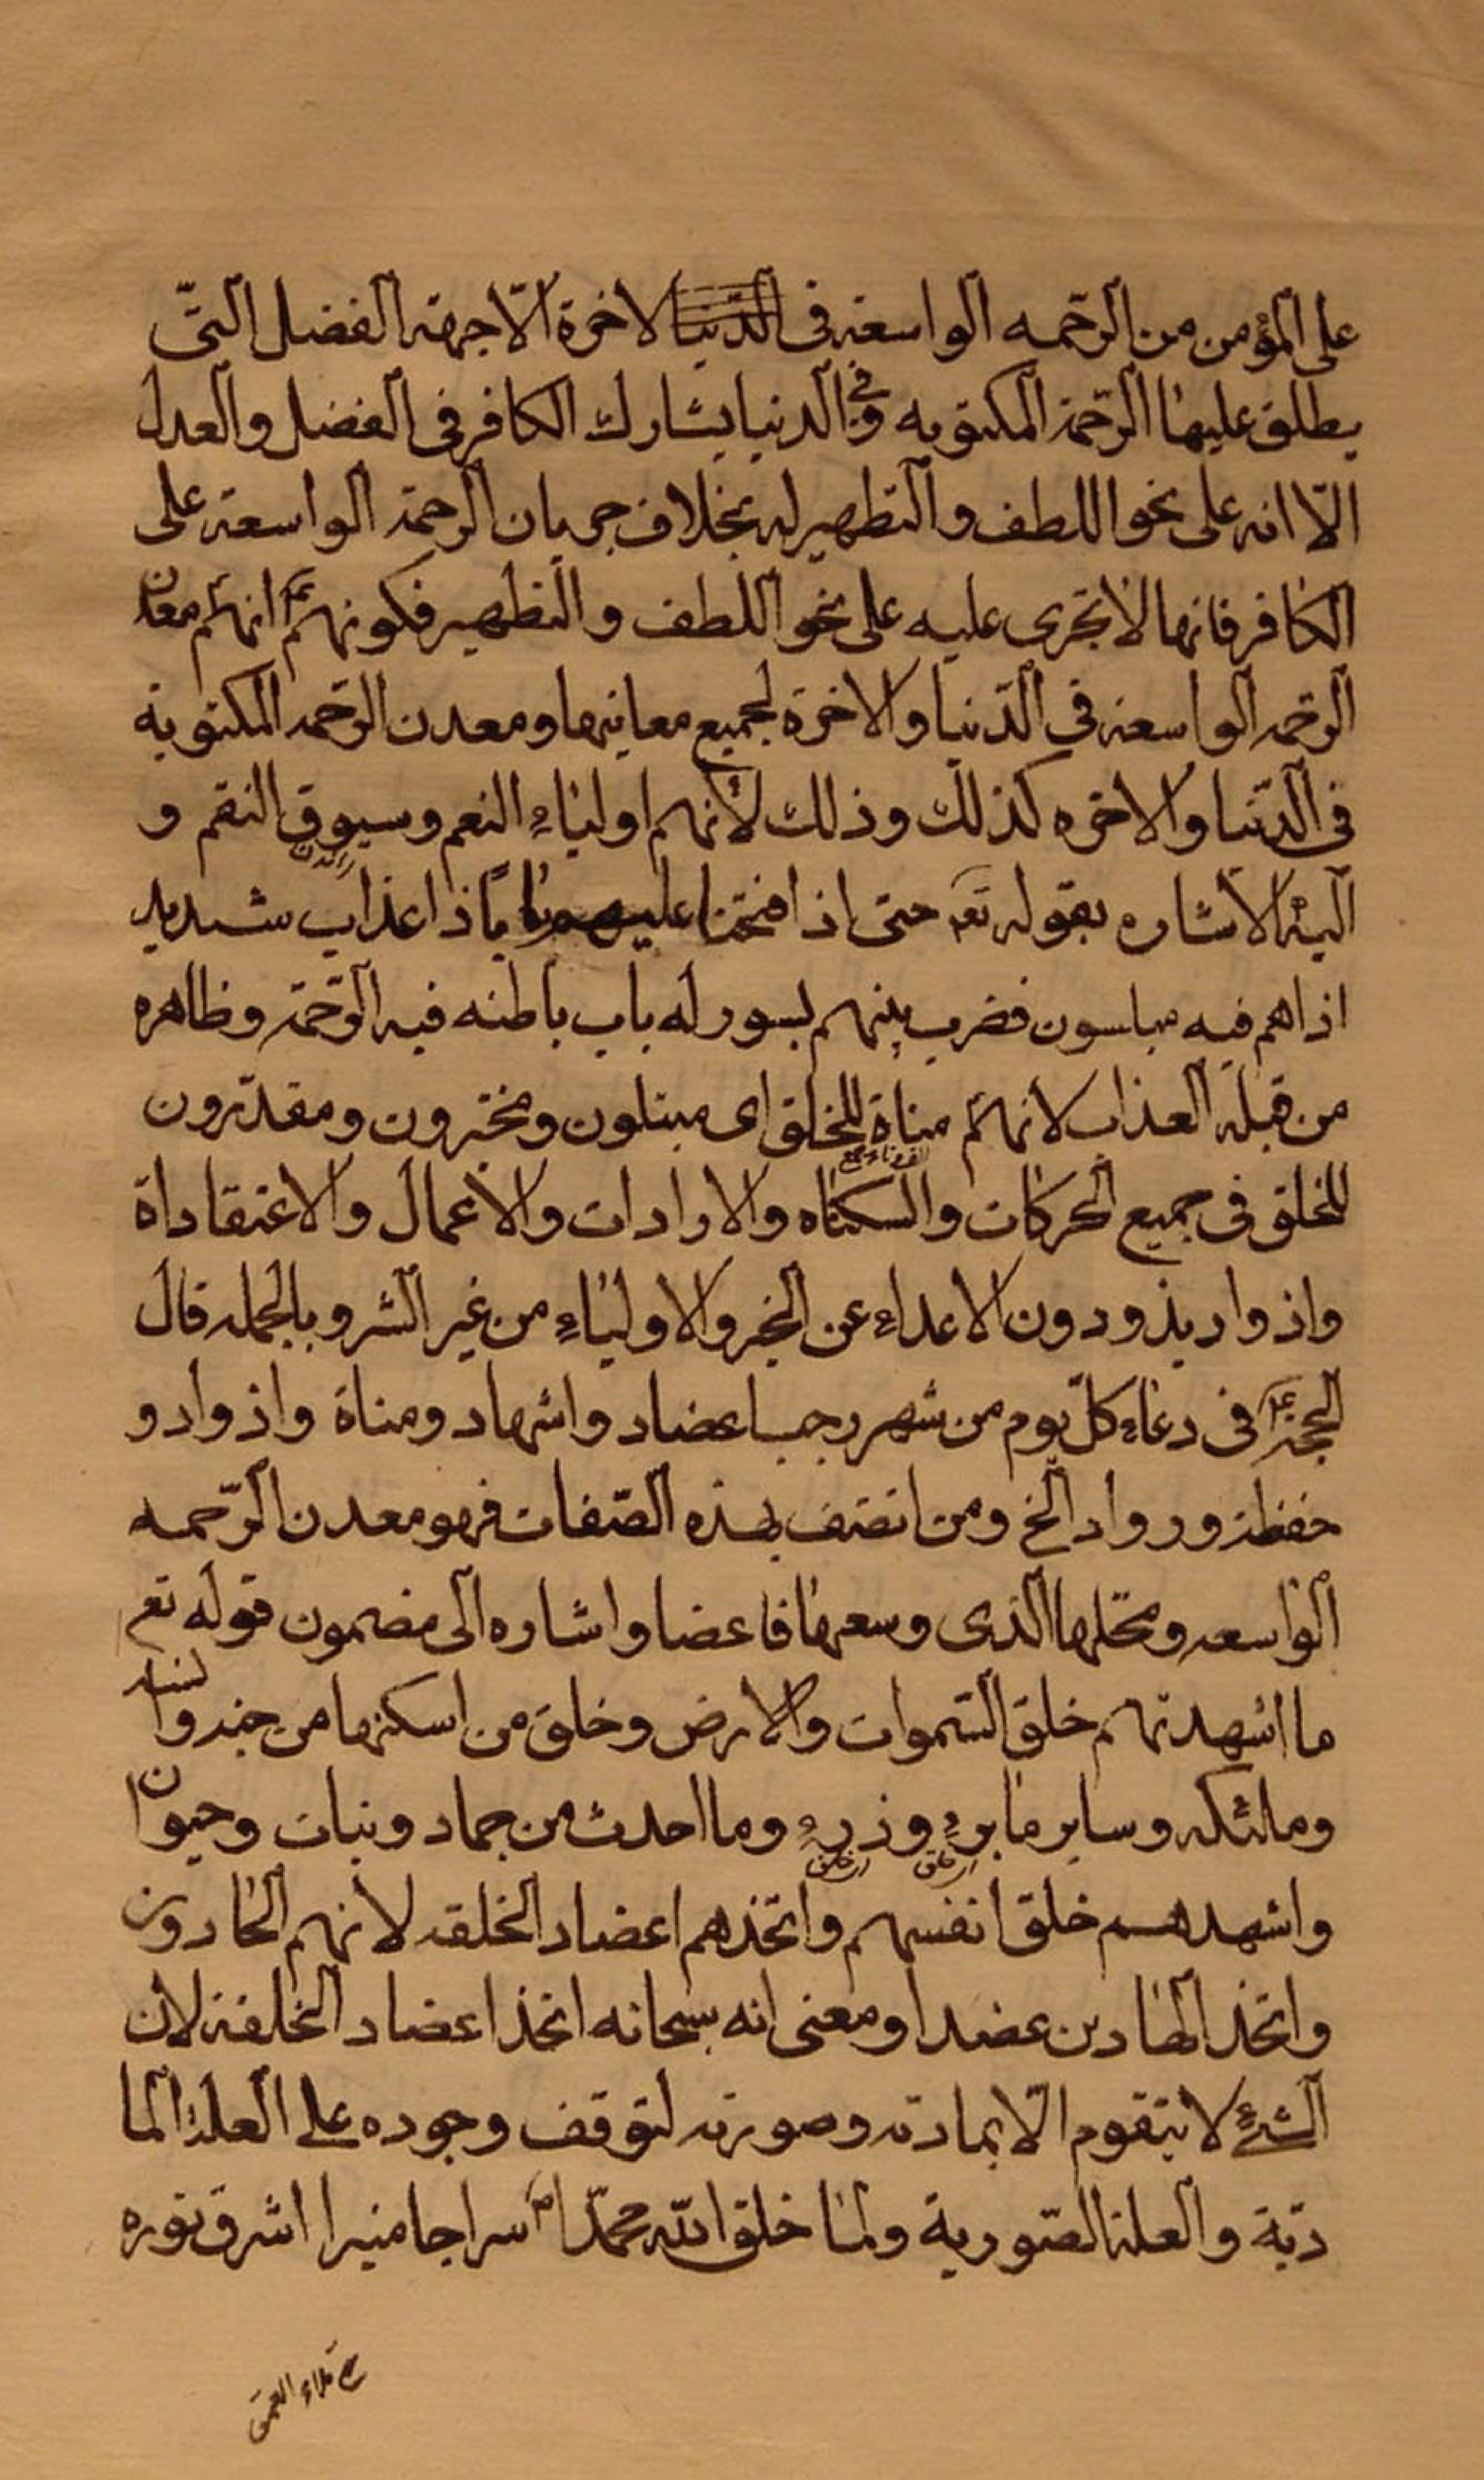 على المؤمن من الرّحمه الواسعة فى الدّنيا لاخرة الّا جهة الفضل الّتى
يطلق عليها الرّحمة المكتوبه وفى الدنيا يشارك الكافر فى الفضل والعدل
الّا انه على نحو اللطف والتطهير له بخلاف جريان الرحمة الواسعة على
الكافر فانها لا تجرى عليه على نحو اللطف والتطهير فكونهم انهم معادن
الرحمه الواسعة فى الدّنيا والاخرة لجميع معانيها ومعدن الرّحمه المكتوبة
فى الدّنيا والاخره كذلك وذلك لأنهم اولياء النعم وسيوق النقم و
اليه الاشاره بقوله تعم حتى اذا فتحنا عليهم باباً ذا عذاب شديد
اذا هم فيه مبلسون فضرب بينهم بسور له باب باطنه فيه الرّحمة وظاهره
من قبله العذاب لانهم مناة للخلق اى مبتلون ومختبرون ومقدّرون
للخلق فى جميع الحركات والسكناه والارادات والاعمال والاعتقاداة
واذواد يذودون الاعداء عن الخير والاولياء من غير الشر وبالجمله قال
الحجة ع فى دعاء كلّ يوم من شهر رجب اعضاد واشهاد ومناة واذواد و
حفظة ورواد الخ ومن اتصف بهذه الصّفات فهو معدن الرّحمه
الواسعه ومحلها الذى وسعها فاعضاد اشاره الى مضمون قوله تعم
ما اشهدتهم خلق السّموات والارض وخلق من اسكنها من جند وانسه
وملئكه وساير ما برء وذرء وما احدث من جماد ونبات وحيوان
واشهدهم خلق انفسهم واتخذهم اعضاد الخلقه لانهم الهادون
واتخذ الهادين عضدا ومعنى انه سبحانه اتخذ اعضاد الخلقة لان
الشئ لا يتقوم الّا بمادته وصورته لتوقف وجوده على العلة الما
دّية والعلة الصّورية ولما خلق الله محمّدا ص سراجا منيرا اشرق نوره